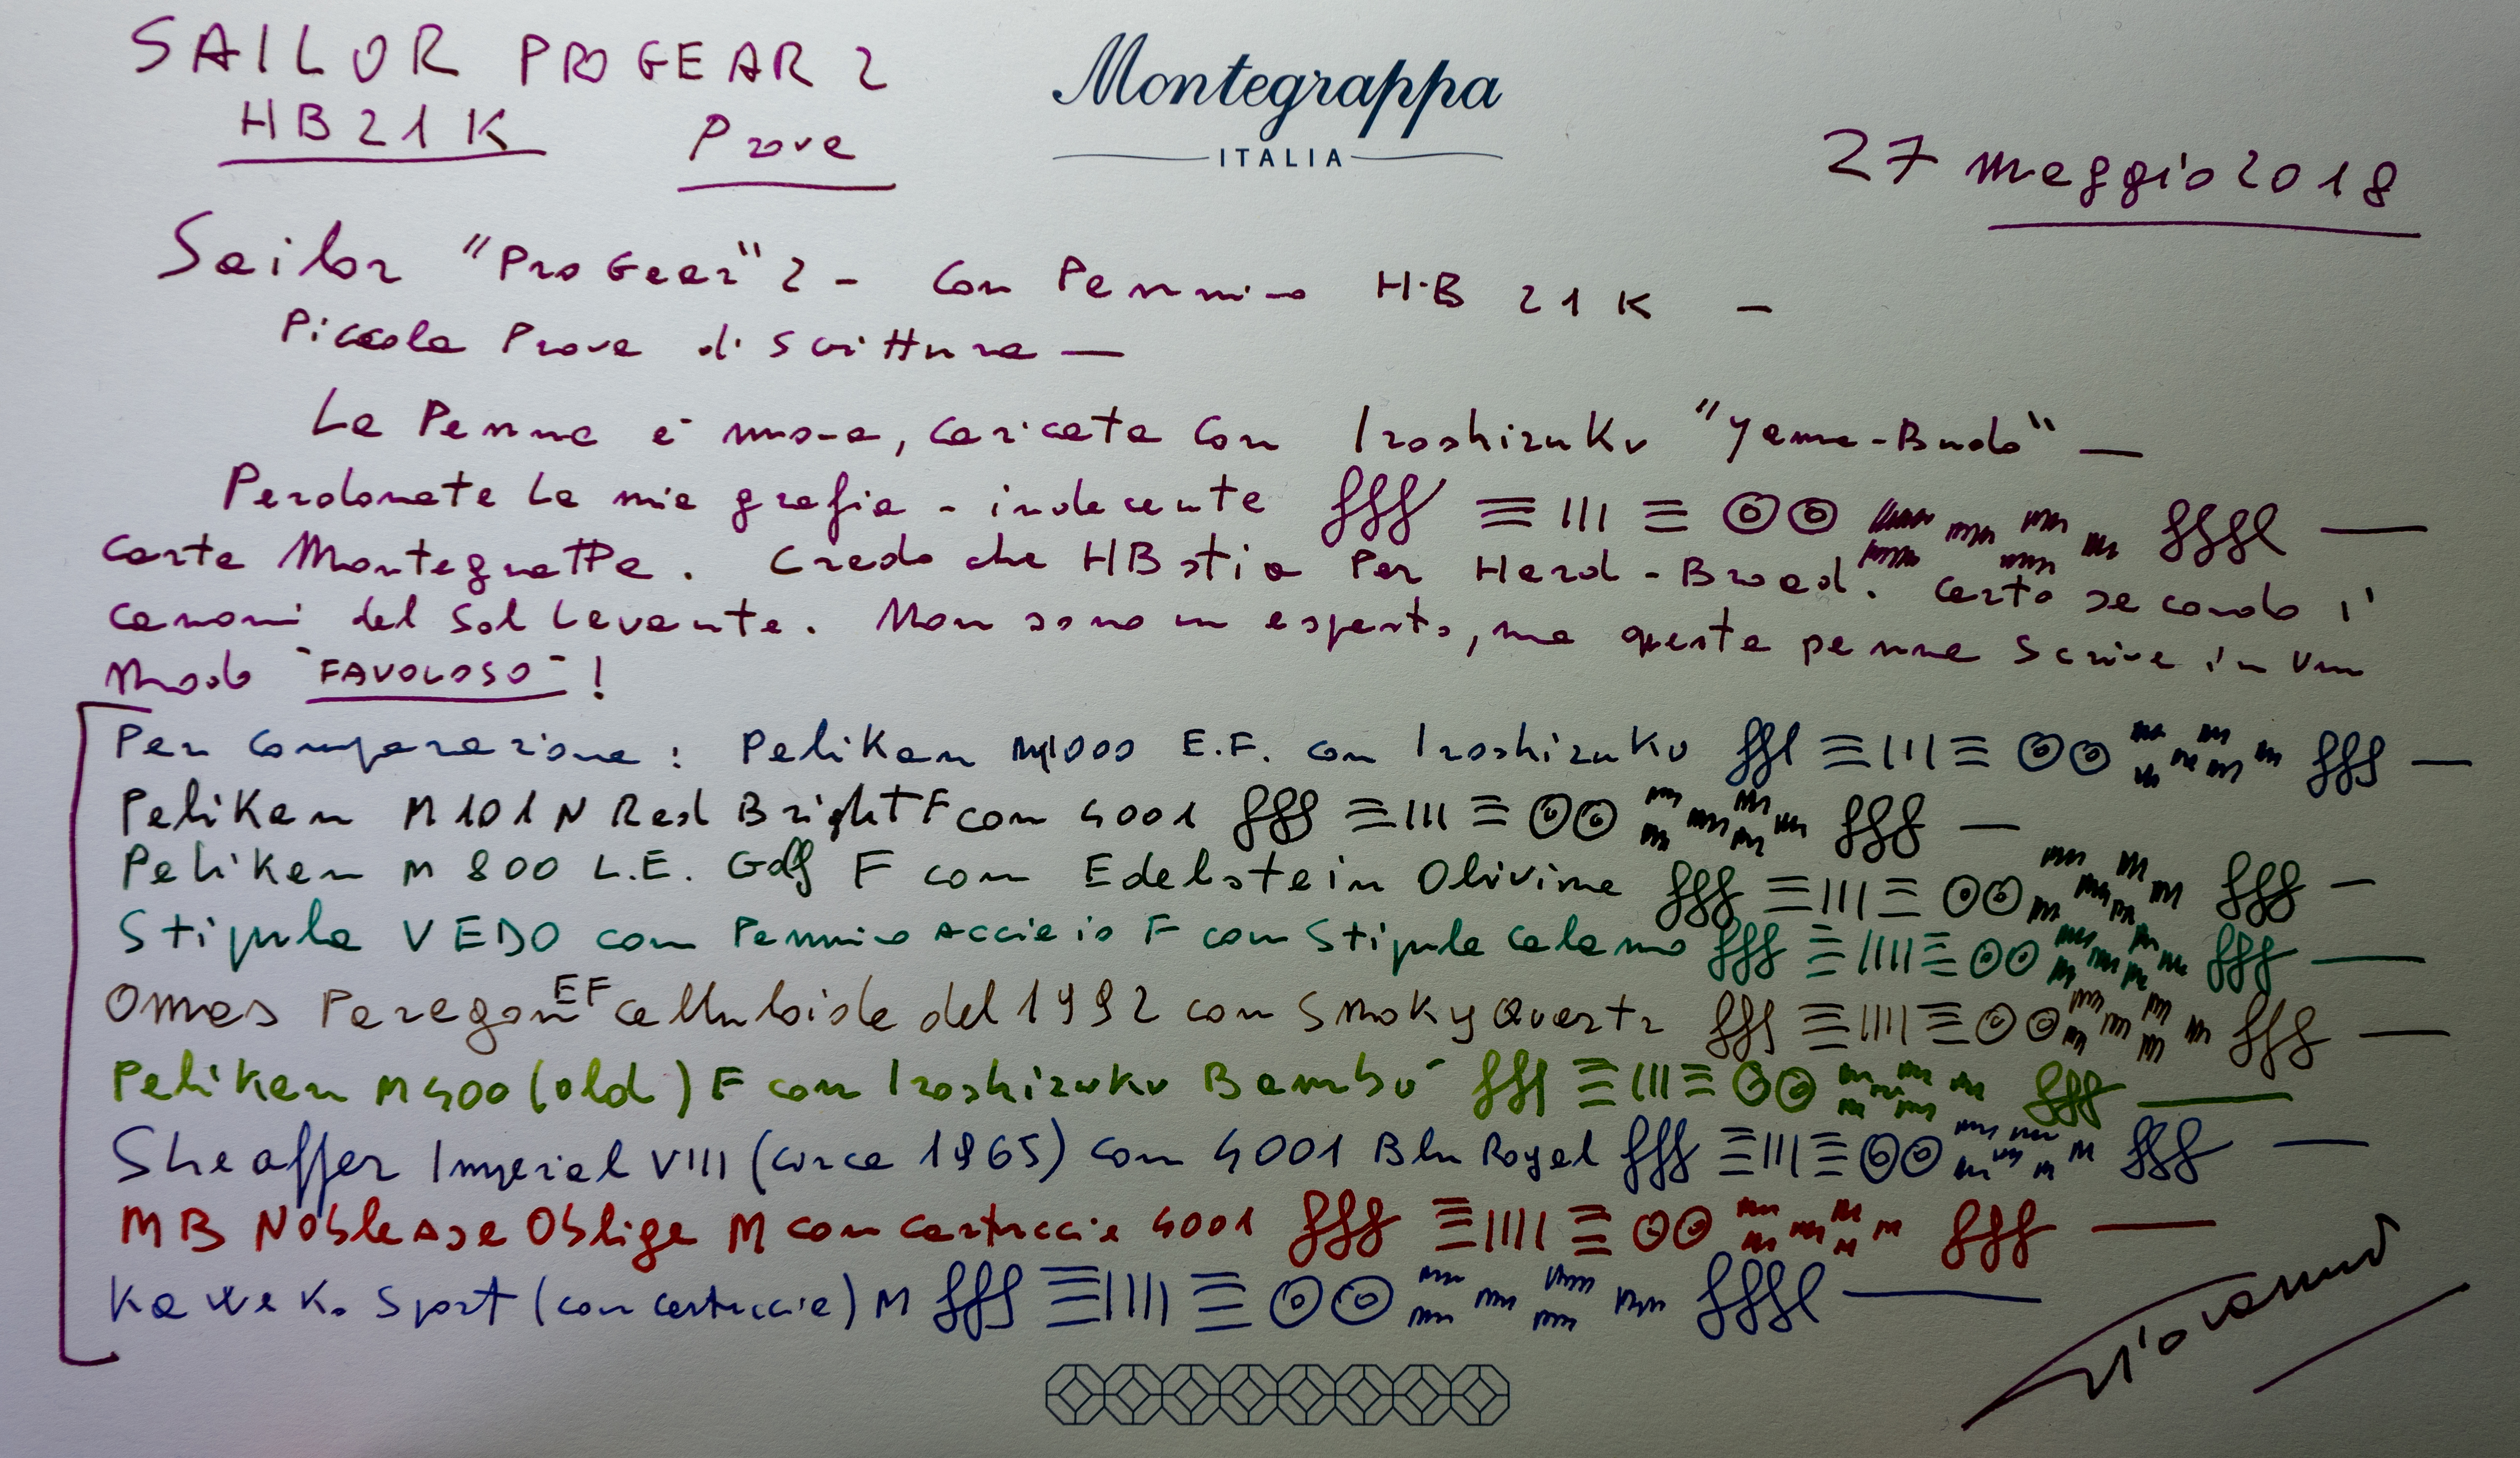 SAILOR PROGEAR 2
HB 21 K Prova
Montegrappa
ITALIA
27 maggio 2018
Sailor "Pro Gear" 2 - Con Pennino H.B 21 K -
Piccola Prova di scrittura —
La Penna è nuova, caricata con Iroshizuku "Yama-Budo" —
Perdonate la mia grafia - indecente fff ≡ III ≡ ffff —
Carta Montegrappa. Credo che HB stia Per Hard - Broad. Certo secondo i'
canoni del Sol Levante. Non sono un esperto, ma questa penna scrive in un
modo "FAVOLOSO" !
Per comparazione : Pelikan M1000 E.F. con Iroshizuku fff ≡ III ≡ fff —
Pelikan M101N Red Bright F con 4001 fff ≡ III ≡ fff —
Pelikan M 800 L.E. F con Edelstein Olivine fff ≡ III ≡ fff —
Stipula VEDO con Pennino acciaio F con Stipula Calamo fff ≡ IIII ≡ fff —
Omas Paragon EF celluloide del 1992 con Smoky Quartz fff ≡ IIII ≡ fff —
Pelikan M400 (old) F con Iroshizuku Bambù fff ≡ III ≡ fff —
Sheaffer Imperial VIII (circa 1965) con 4001 Blu Royal fff ≡ III ≡ fff —
MB Noblesse Oblige M con cartuccia 4001 fff ≡ IIII ≡ fff —
Kaweko Sport (con cartuccia) M fff ≡ IIII ≡ ffff —
Giovanni